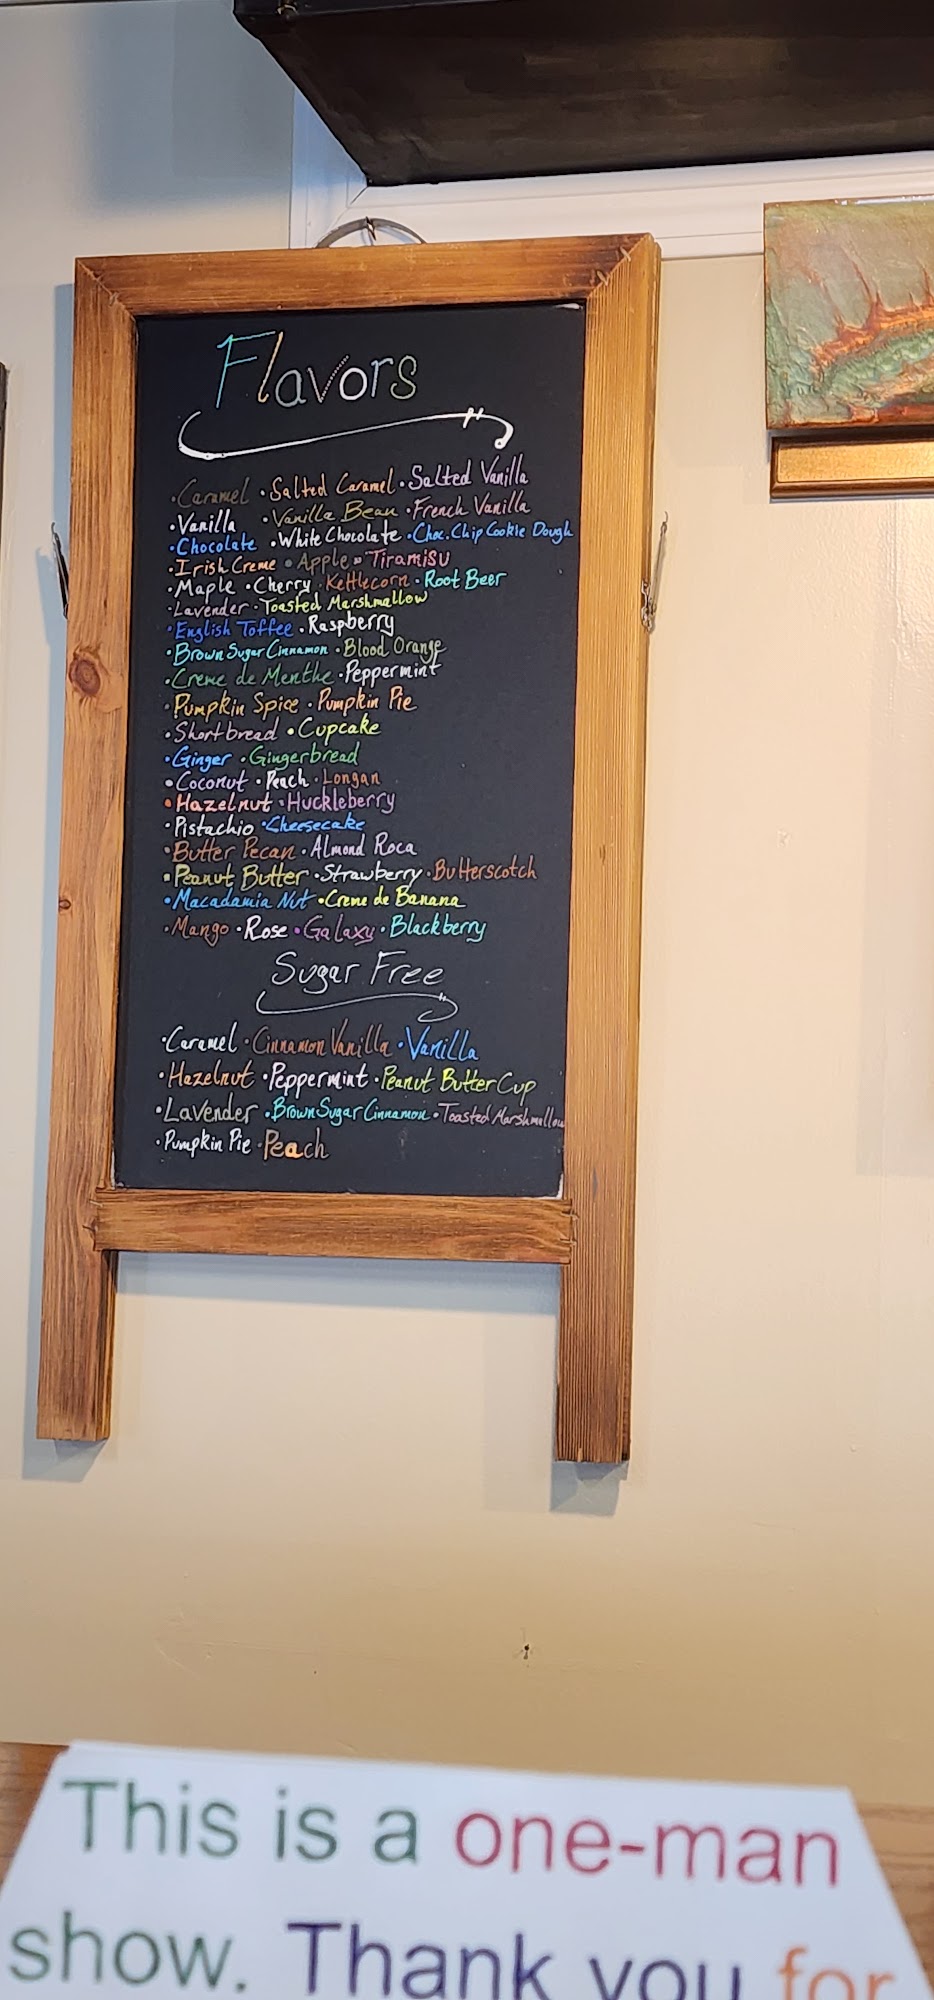 Flavors
·Caramel ·Salted Caramel ·Salted Vanilla
·Vanilla ·Vanilla Bean ·French Vanilla
·Chocolate ·White Chocolate ·Choc. Chip Cookie Dough
·Irish Creme ·Apple ·Tiramisu
·Maple ·Cherry ·Kettlecorn ·Root Beer
·Lavender ·Toasted Marshmallow
·English Toffee ·Raspberry
·Brown Sugar Cinnamon ·Blood Orange
·Creme de Menthe ·Peppermint
·Pumpkin Spice ·Pumpkin Pie
·Shortbread ·Cupcake
·Ginger ·Gingerbread
·Coconut ·Peach ·Longan
·Hazelnut ·Huckleberry
·Pistachio ·Cheesecake
·Butter Pecan ·Almond Roca
·Peanut Butter ·Strawberry ·Butterscotch
·Macadamia Nut ·Creme de Banana
·Mango ·Rose ·Galaxy ·Blackberry
Sugar Free
·Caramel ·Cinnamon Vanilla ·Vanilla
·Hazelnut ·Peppermint ·Peanut Butter Cup
·Lavender ·Brown Sugar Cinnamon ·Toasted Marshmallow
·Pumpkin Pie ·Peach
This is a one-man
show. Thank you for